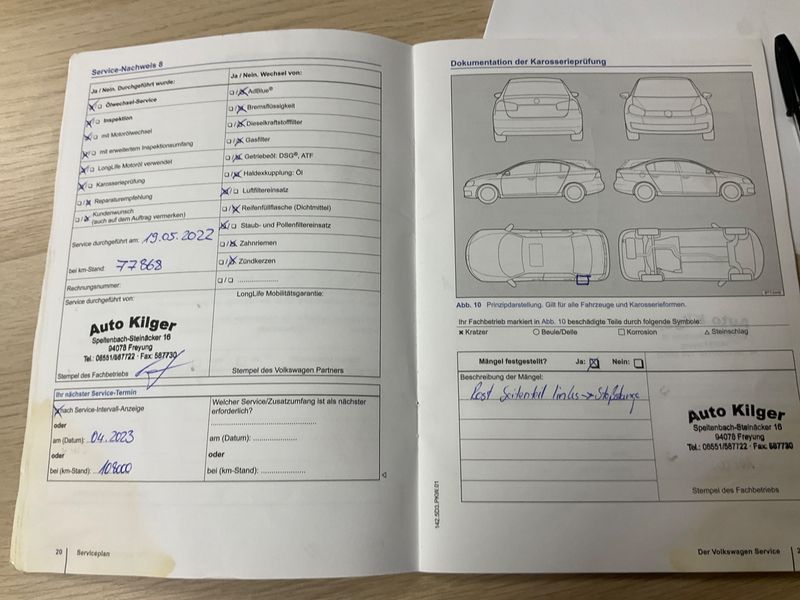 Service-Nachweis 8
Ja / Nein. Durchgeführt wurde:
Ölwechsel-Service
Inspektion
mit Motorölwechsel
mit erweitertem Inspektionsumfang
LongLife Motoröl verwendet
Karosserieprüfung
Reparaturempfehlung
Kundenwunsch
(auch auf dem Auftrag vermerken)
Service durchgeführt am: 19.05.2022
bei km-Stand: 77868
Rechnungsnummer:
Service durchgeführt von:
Auto Kilger
Speltenbach-Steinäcker 16
94078 Freyung
Tel.: 08551/587722 · Fax: 587730
Stempel des Fachbetriebs
Ja / Nein. Wechsel von:
AdBlue®
Bremsflüssigkeit
Dieselkraftstofffilter
Gasfilter
Getriebeöl: DSG®, ATF
Haldexkupplung: Öl
Luftfiltereinsatz
Reifenfüllflasche (Dichtmittel)
Staub- und Pollenfiltereinsatz
Zahnriemen
Zündkerzen
LongLife Mobilitätsgarantie:
Stempel des Volkswagen Partners
Ihr nächster Service-Termin
nach Service-Intervall-Anzeige
oder
am (Datum): 04.2023
oder
bei (km-Stand): 108000
Welcher Service/Zusatzumfang ist als nächster
erforderlich?
am (Datum):
oder
bei (km-Stand):
20 Serviceplan
Dokumentation der Karosserieprüfung
Abb. 10 Prinzipdarstellung. Gilt für alle Fahrzeuge und Karosserieformen.
Ihr Fachbetrieb markiert in Abb. 10 beschädigte Teile durch folgende Symbole:
Kratzer Beule/Delle Korrosion Steinschlag
Mängel festgestellt? Ja: Nein:
Beschreibung der Mängel:
Rost Seitenteil links → Stoßstange
Auto Kilger
Speltenbach-Steinäcker 16
94078 Freyung
Tel.: 08551/587722 · Fax: 587730
Stempel des Fachbetriebs
142.5D3.PKW.01
Der Volkswagen Service